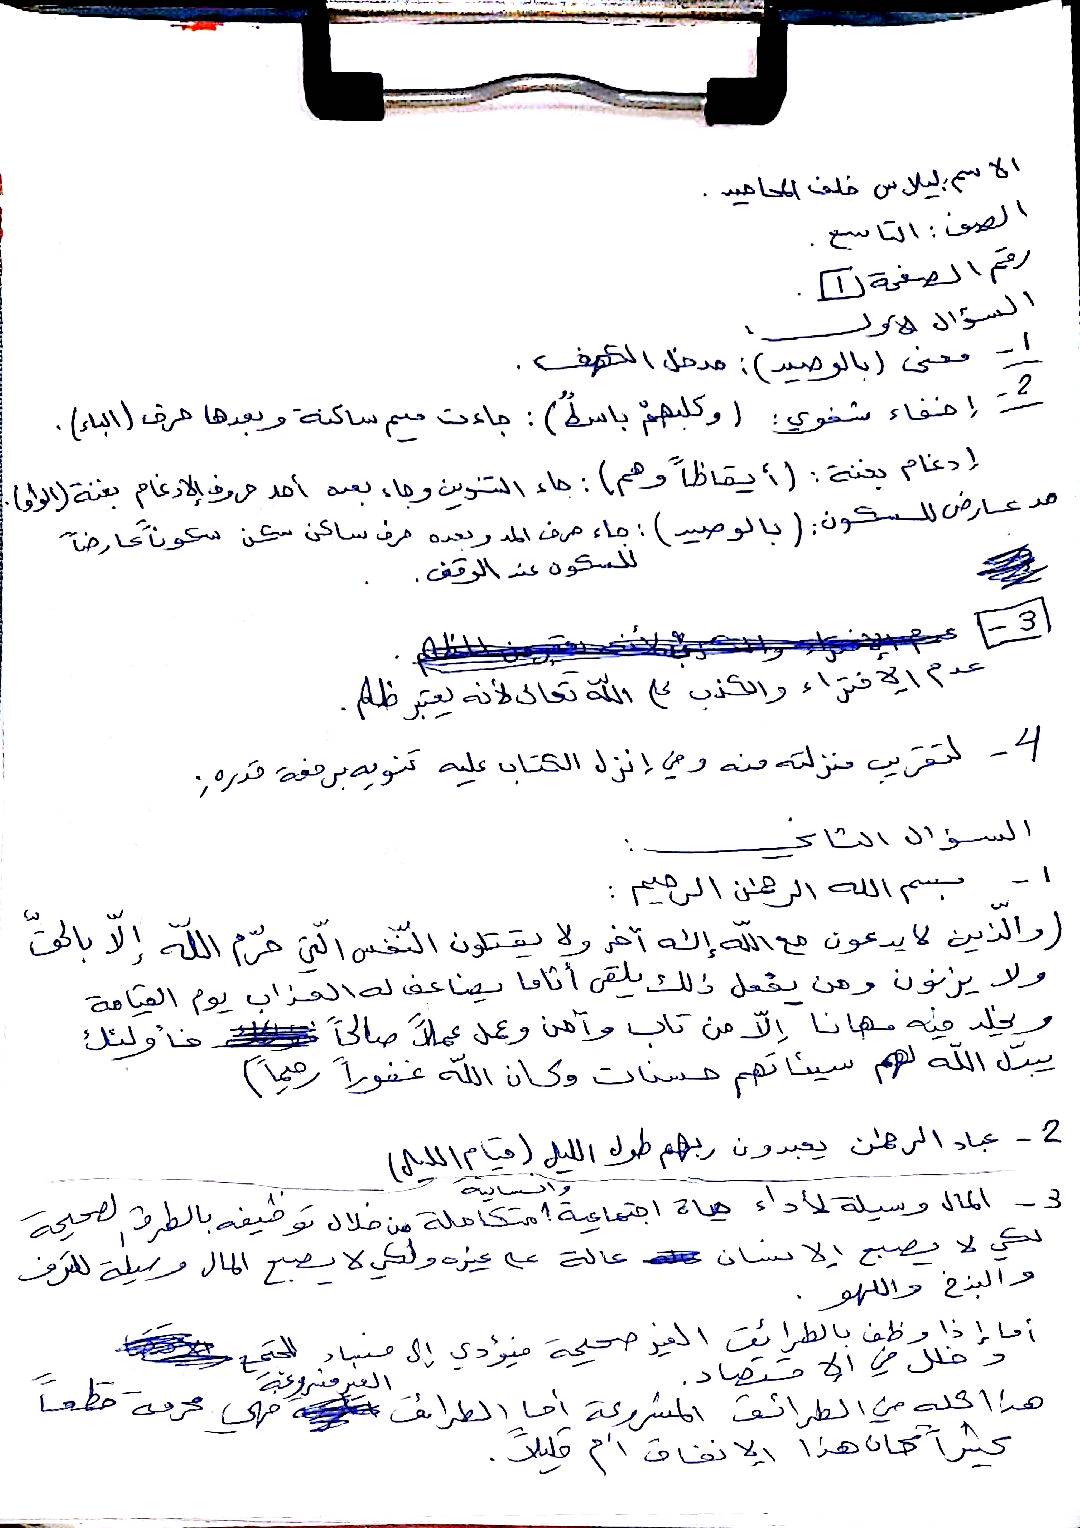 الاسم: ليلاس خلف المحاميد.
الصف: التاسع.
رقم الصفحة 1.
السؤال الأول:
1- معنى (بالوصيد): مدخل الكهف.
2- إخفاء شفوي: (وكلبهمْ باسطٌ): جاءت ميم ساكنة وبعدها حرف (الباء).
إدغام بغنة: (أيقاظاً وهم): جاء التنوين وجاء بعده أحد حروف الإدغام بغنة (الواو).
مد عارض للسكون: (بالوصيد): جاء حرف المد وبعده حرف ساكن سكن سكوناً عارضاً
للسكون عند الوقف.
3-
عدم الإفتراء والكذب على اللّه تعالى لأنه يعتبر ظلم.
4- لتقريب منزلته منه وفي إنزل الكتاب عليه تنويه برفعة قدره.
السؤال الثاني:
1- بسم الله الرحمن الرحيم:
(والّذين لا يدعون مع اللّه إله آخر ولا يقتلون النّفس الّتي حرّم اللّه إلّا بالحقّ
ولا يزنون ومن يفعل ذلك يلقى أثاما يضاعف له العذاب يوم القيامة
ويخلد فيه مهانا إلّا من تاب وآمن وعمل عملاً صالحاً فأولئك
يبدّل اللّه لهم سيئاتهم حسنات وكان اللّه غفوراً رحيماً)
2- عباد الرحمن يعبدون ربهم طول الليل (قيام الليل)
3- المال وسيلة لأداء حياة اجتماعية وانسانية متكاملة من خلال توظيفه بالطرق الصحيحة
لكي لا يصبح الإنسان عالة على غيره ولكي لا يصبح المال وسيلة للترف
والبذخ واللهو.
أما إذا وظف بالطرائق الغير صحيحة فيؤدي إلى فساد المجتمع
وخلل في الاقتصاد.
هذا كله في الطرائق المشروعة أما الطرائق الغير مشروعة فهي محرمة قطعاً
كثيراً كان هذا الإنفاق أم قليلاً.